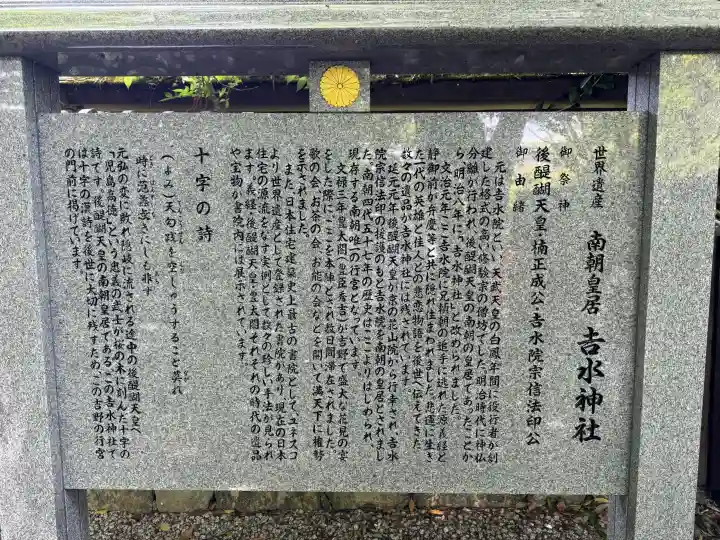 世界遺産 南朝皇居 吉水神社
御祭神
後醍醐天皇・楠正成公・吉水院宗信法印公
御由緒
元は吉水院といい天武天皇の白鳳年間に役行者が創
建した格式の高い修験宗の僧坊でした。明治時代に神仏
分離が行われ、後醍醐天皇の南朝の皇居であったことか
ら、明治八年に「吉水神社」と改められました。
文治元年、ここ吉水院に兄頼朝の追手に逃れた源義経と
静御前が弁慶等と共に隠れ住まわれました。悲運に生き
た一代の英雄と佳人との悲恋物語を後世へ伝えてきた
数々の遺品が吉水神社には残されています。
延元元年、後醍醐天皇が京の花山院から行幸され、吉水
院宗信法印の援護のもと吉水院を南朝の皇居とされまし
た。南朝四代五十七年の歴史はここよりはじめられ、
現存する南朝唯一の行宮となっています。
文禄三年、豊太閤（豊臣秀吉）が吉野で盛大な花見の宴
をした際に、ここを本陣とされ数日間滞在されました。
歌の会、お茶の会、お能の会などを開いて満天下に権勢
を示されました。
また、日本住宅建築史上最古の書院として、ユネスコ
より世界遺産として登録された書院があり、現在の日本
住宅の源流をなす実例として数々の珍しい手法が見られ
ます。義経・後醍醐天皇・豊太閤それぞれの時代の遺品
や宝物が書院内には展示されています。
十字の詩
（よみ）天勾践を空しゅうすること莫れ
時に范蠡無きにしも非ず
元弘の変に敗れ隠岐に流される途中の後醍醐天皇へ
「児島高徳」という忠義の武士が桜の木に刻んだ十字の
詩です。後醍醐天皇の南朝皇居であるこの吉水神社で
は十字の詩を後世に大切に残すため、この吉野の行宮
の門前に掲げています。